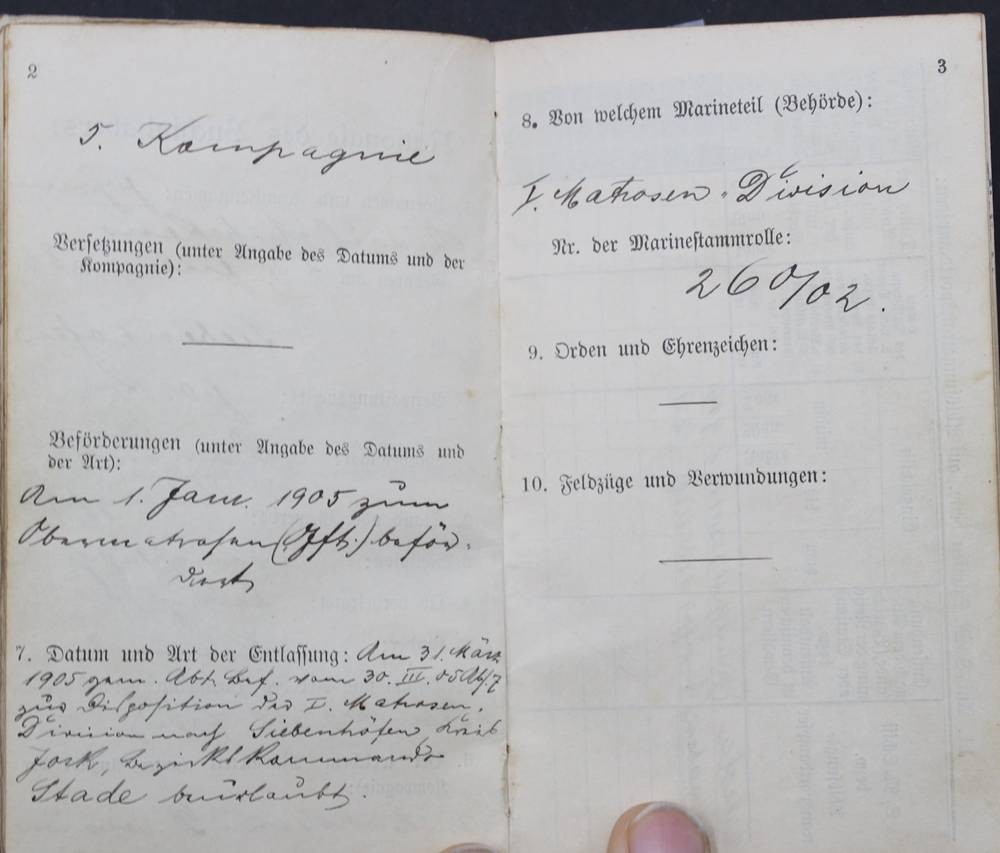 2
5. Kompagnie
Versetzungen (unter Angabe des Datums und der
Kompagnie):
Beförderungen (unter Angabe des Datums und
der Art):
Am 1. Janu. 1905 zum
Obermatrosen (Jft.) beför-
dert
7. Datum und Art der Entlassung: Am 31. März
1905 gem. Abt. Bef. vom 30. III. 05 Abs. 7
zur Disposition der I. Matrosen-
Division nach Siebenhöfen Kreis
Jork, Bezirkskommando
Stade beurlaubt.
3
8. Von welchem Marineteil (Behörde):
I. Matrosen-Division
Nr. der Marinestammrolle:
260/02.
9. Orden und Ehrenzeichen:
10. Feldzüge und Verwundungen: